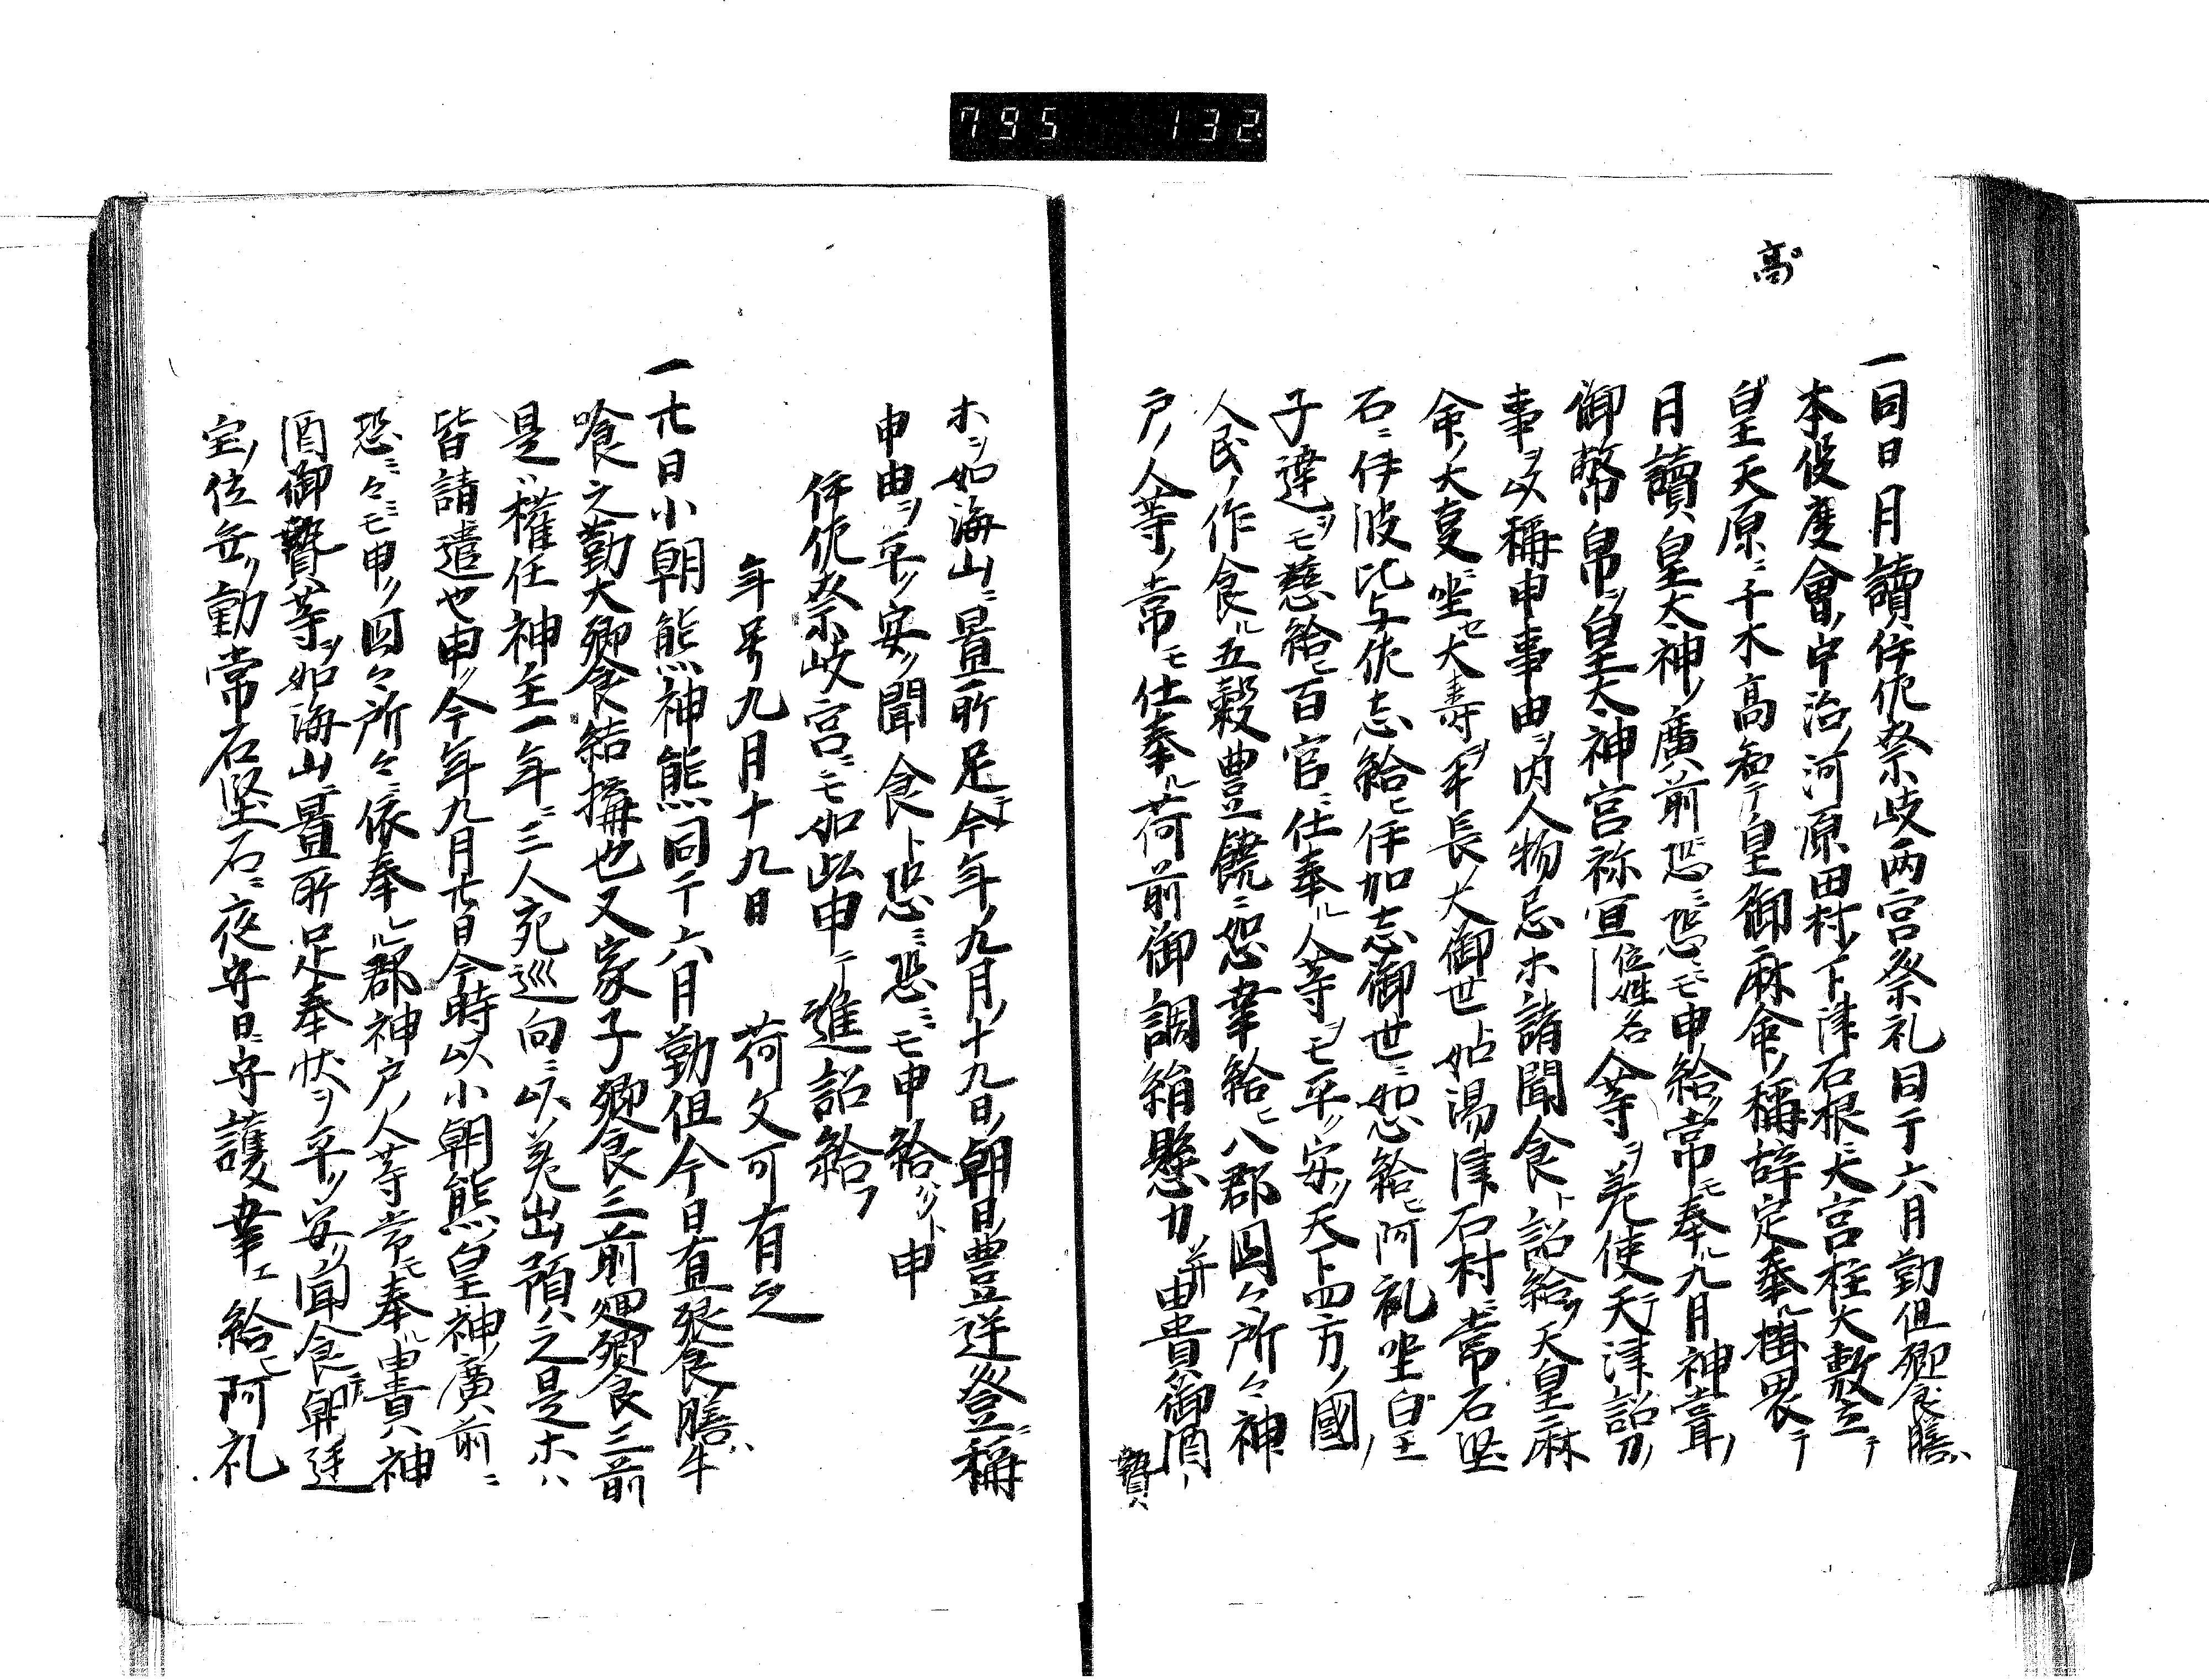 795 132
高
一同日月讀伊佐奈岐両宮祭礼日于六月勤但饗膳ハ
本役度會ノ宇治ノ河原田村ノ下津石根ニ大宮柱大敷立テ
皇天原ニ千木高知テ皇御麻命ノ稱辞定奉ル掛畏テ
月讀皇大神ノ廣前恐ミ恐ミモ申給ク常モ奉ル九月神甞ノ
御幣帛ヲ皇大神宮祢宜位姓名人等ヲ差使天津詔刀ノ
事ヲ以稱申事由ヲ内人物忌ホ諸聞食ト詔給フ天皇麻
命ノ大夏ニ坐セ大寿ヲ手長ノ大御世ノ如湯津石村ニ常石堅
石ニ伊波比与佐志給ヒ伊加志御世ニ如恐給ヒ阿礼坐皇
子達ヲモ慈給ヒ百官ニ仕奉ル人等ヲモ平ク安ク天下四方ノ國ノ
人民ノ作食ル五穀豊饒ニ恕幸給ヒ八郡国々所々神
戸ノ人等ノ常モ仕奉ル荷前御調絹懸力并由貴ノ御酒ノ
贄
ホヲ如海山ニ置所足テ今年ノ九月ノ十九日ノ朝日豊逆登ニ稱
申由ヲ平ク安ク聞食ト恐ミ恐ミモ申給ハクト申
伊佐奈岐宮ニモ如此申ニテ進詔給フ
年号九月十九日　荷文可有之
一廿日小朝熊神態同于六月勤但今日直張食膳ハ牛
喰之勤大饗食結搆也又家子饗食三前廻饗食三前
是ハ權任神主一年ニ三人宛巡向ニ以差出預ハ之是ホハ
皆請遣也申ク今年九月廿日今時以小朝熊皇神ノ廣前ニ
恐ミ々ミモ申ク国々所々ニ依奉ル郡神戸ノ人等常モ奉ル由貴ノ神
酒御贄等ヲ如海山ニ置所足奉状ヲ平ク安ク聞食テ朝廷
宝ノ位无ク動常石堅石ニ夜守日ニ守護幸エ給ヒ阿礼